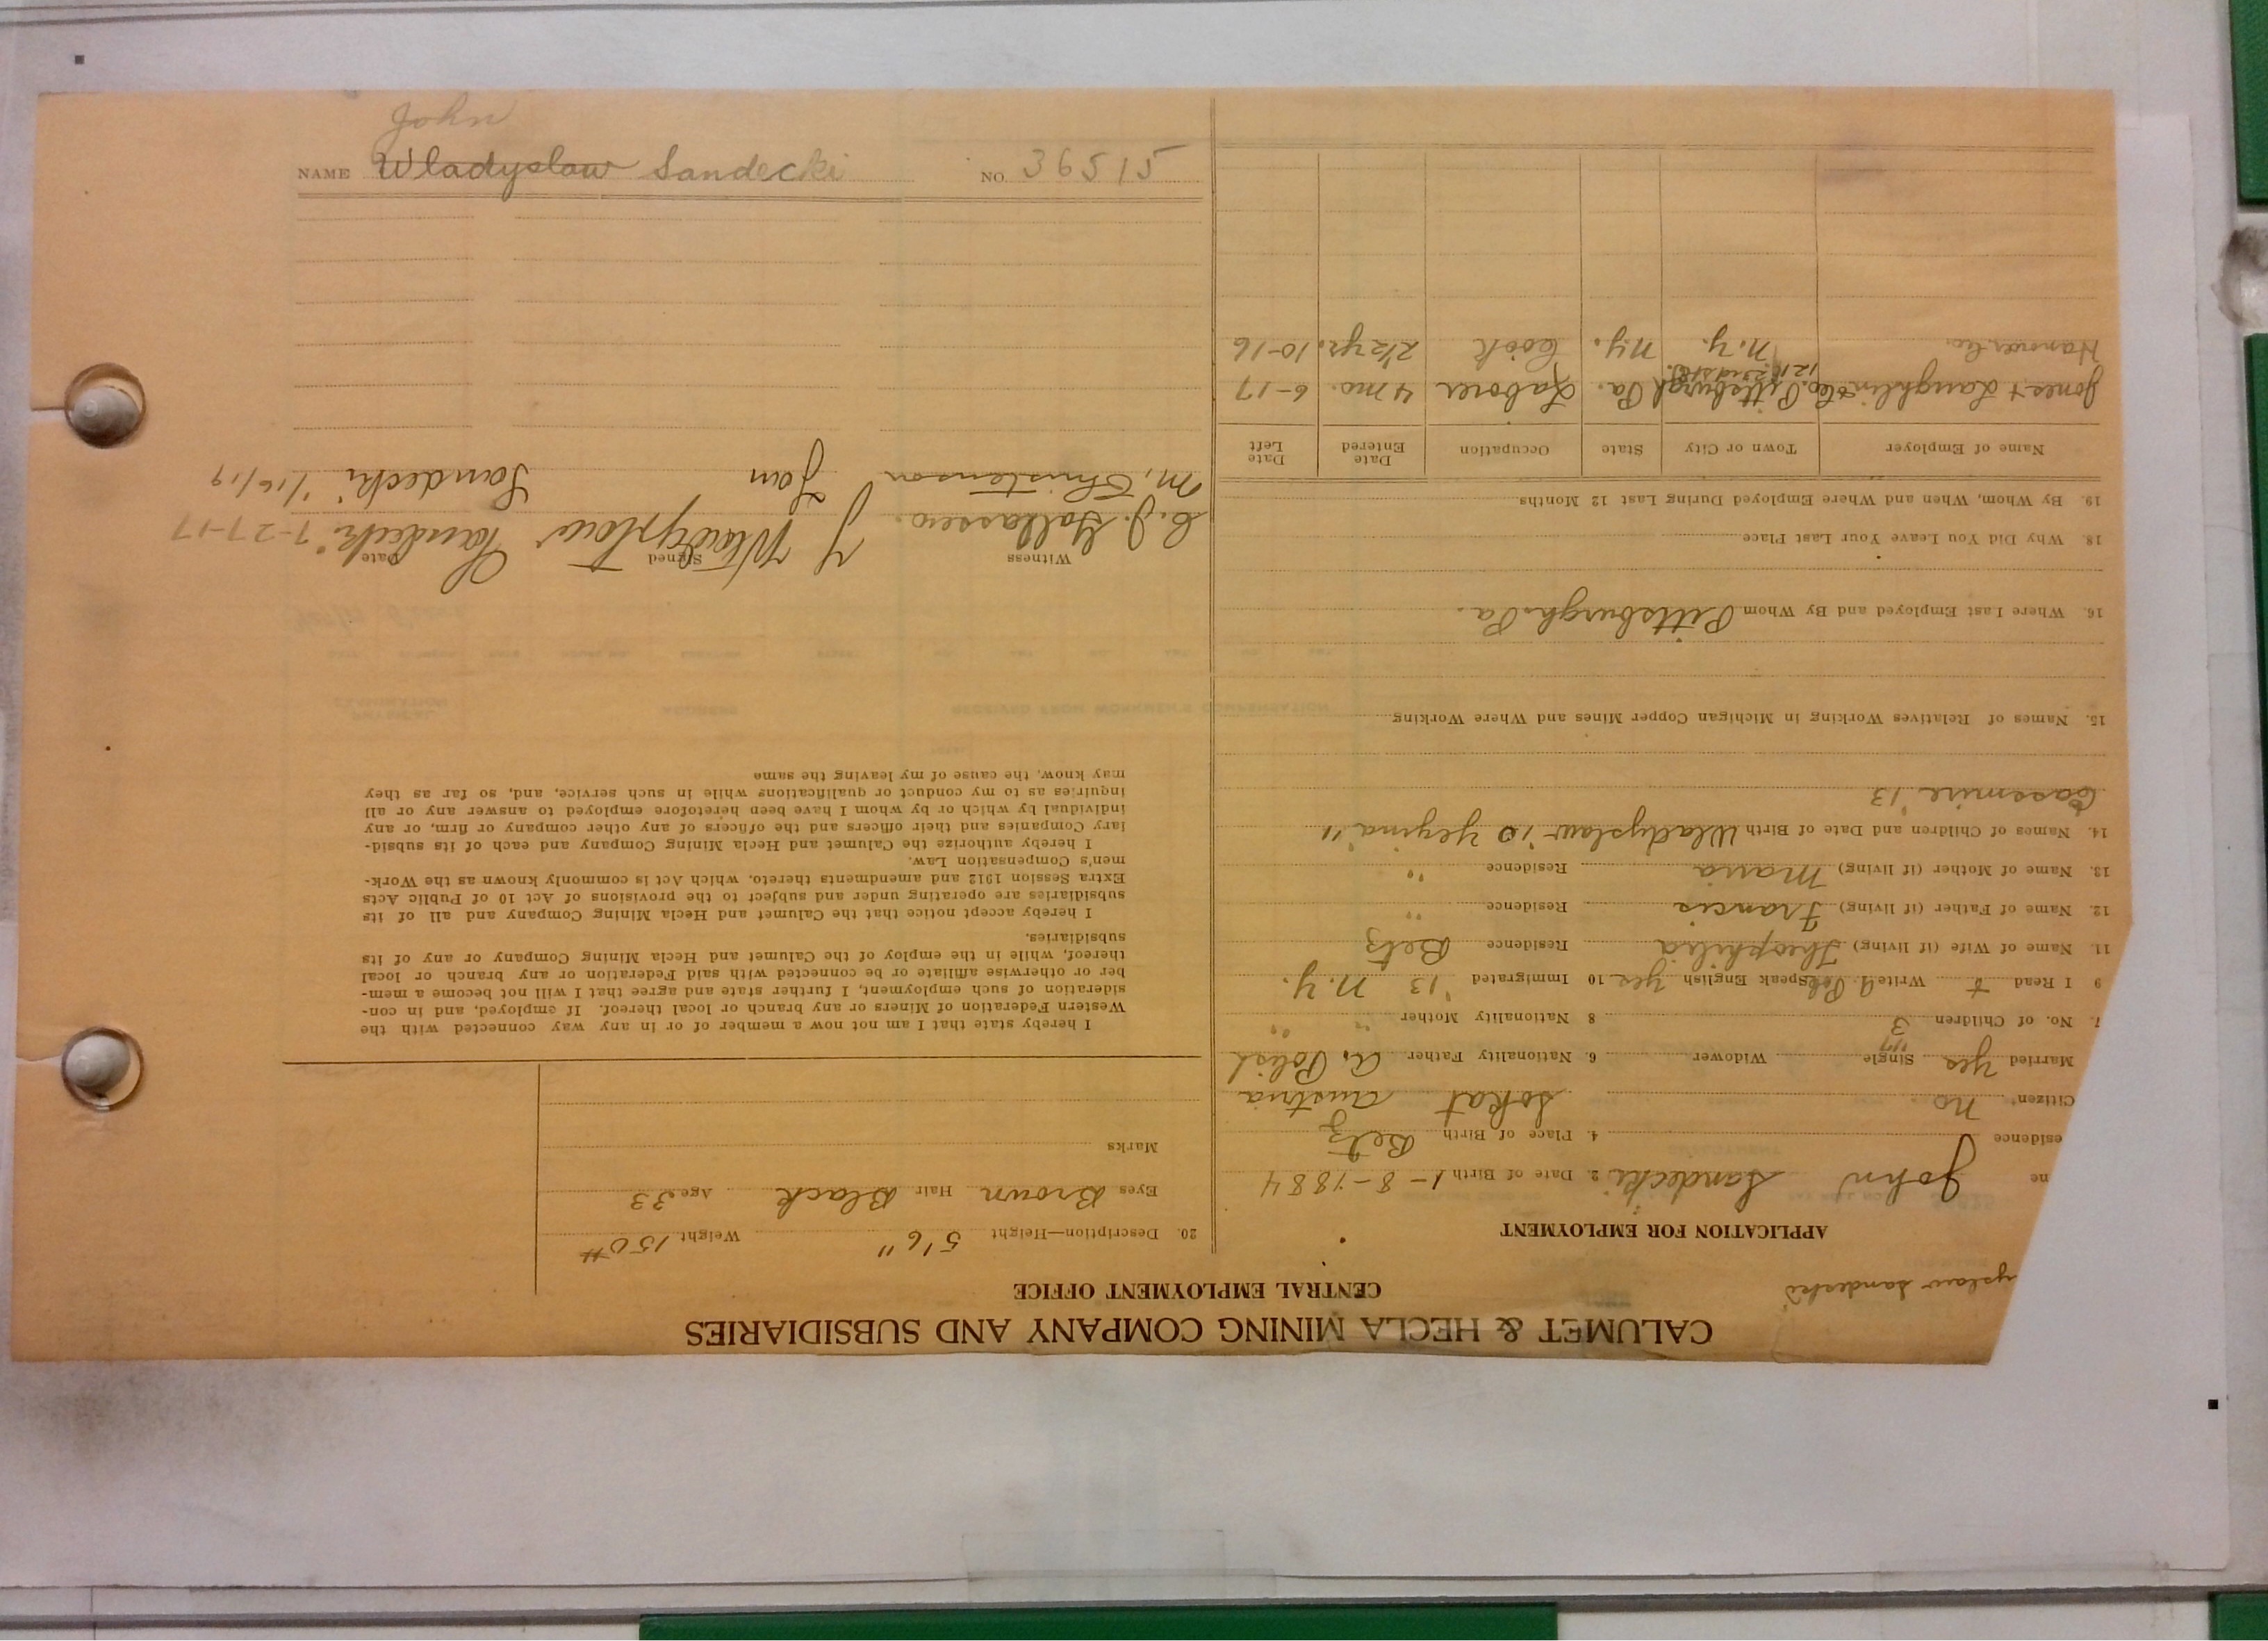 CALUMET & HECLA MINING COMPANY AND SUBSIDIARIES
CENTRAL EMPLOYMENT OFFICE
yslaw Sandecki
APPLICATION FOR EMPLOYMENT
ne John Sandecki 2. Date of Birth 1-8-1884
esidence 4. Place of Birth Betz
Citizen no Sokat Austria
Married yes Single Widower 6. Nationality Father A. Polish
7. No. of Children 3 8 Nationality Mother " "
9 I Read + Write A. Pol. Speak English yes 10 Immigrated '13 N.Y.
11. Name of Wife (if living) Theophilia Residence Betz
12. Name of Father (if living) Francis Residence "
13. Name of Mother (if living) Maria Residence "
14. Names of Children and Date of Birth Wladyslaw '10 Yeyina '11
Casmire '13
15. Names of Relatives Working in Michigan Copper Mines and Where Working
16. Where Last Employed and By Whom Pittsburgh Pa.
18. Why Did You Leave Your Last Place
19. By Whom, When and Where Employed During Last 12 Months
Name of Employer Town or City State Occupation Date Entered Date Left
Jones & Laughlin Co. Pittsburgh Pa. Laborer 4 mo. 6-17
Hanover Co. N.Y. N.Y. Cook 2 1/2 yr. 10-16
20. Description—Height 5'6" Weight 150#
Eyes Brown Hair Black Age 33
Marks
I hereby state that I am not now a member of or in any way connected with the
Western Federation of Miners or any branch or local thereof. If employed, and in con-
sideration of such employment, I further state and agree that I will not become a mem-
ber or otherwise affiliate or be connected with said Federation or any branch or local
thereof, while in the employ of the Calumet and Hecla Mining Company or any of its
subsidiaries.
I hereby accept notice that the Calumet and Hecla Mining Company and all of its
subsidiaries are operating under and subject to the provisions of Act 10 of Public Acts
Extra Session 1912 and amendments thereto, which Act is commonly known as the Work-
men's Compensation Law.
I hereby authorize the Calumet and Hecla Mining Company and each of its subsid-
iary Companies and their officers and the officers of any other company or firm, or any
individual by which or by whom I have been heretofore employed to answer any or all
inquiries as to my conduct or qualifications while in such service, and, so far as they
may know, the cause of my leaving the same
Witness Signed Date
C. J. Wladyslaw Sandecki 7-27-17
M. Christenson Jan Sandecki 1/16/19
John
NAME Wladyslaw Sandecki NO. 36515